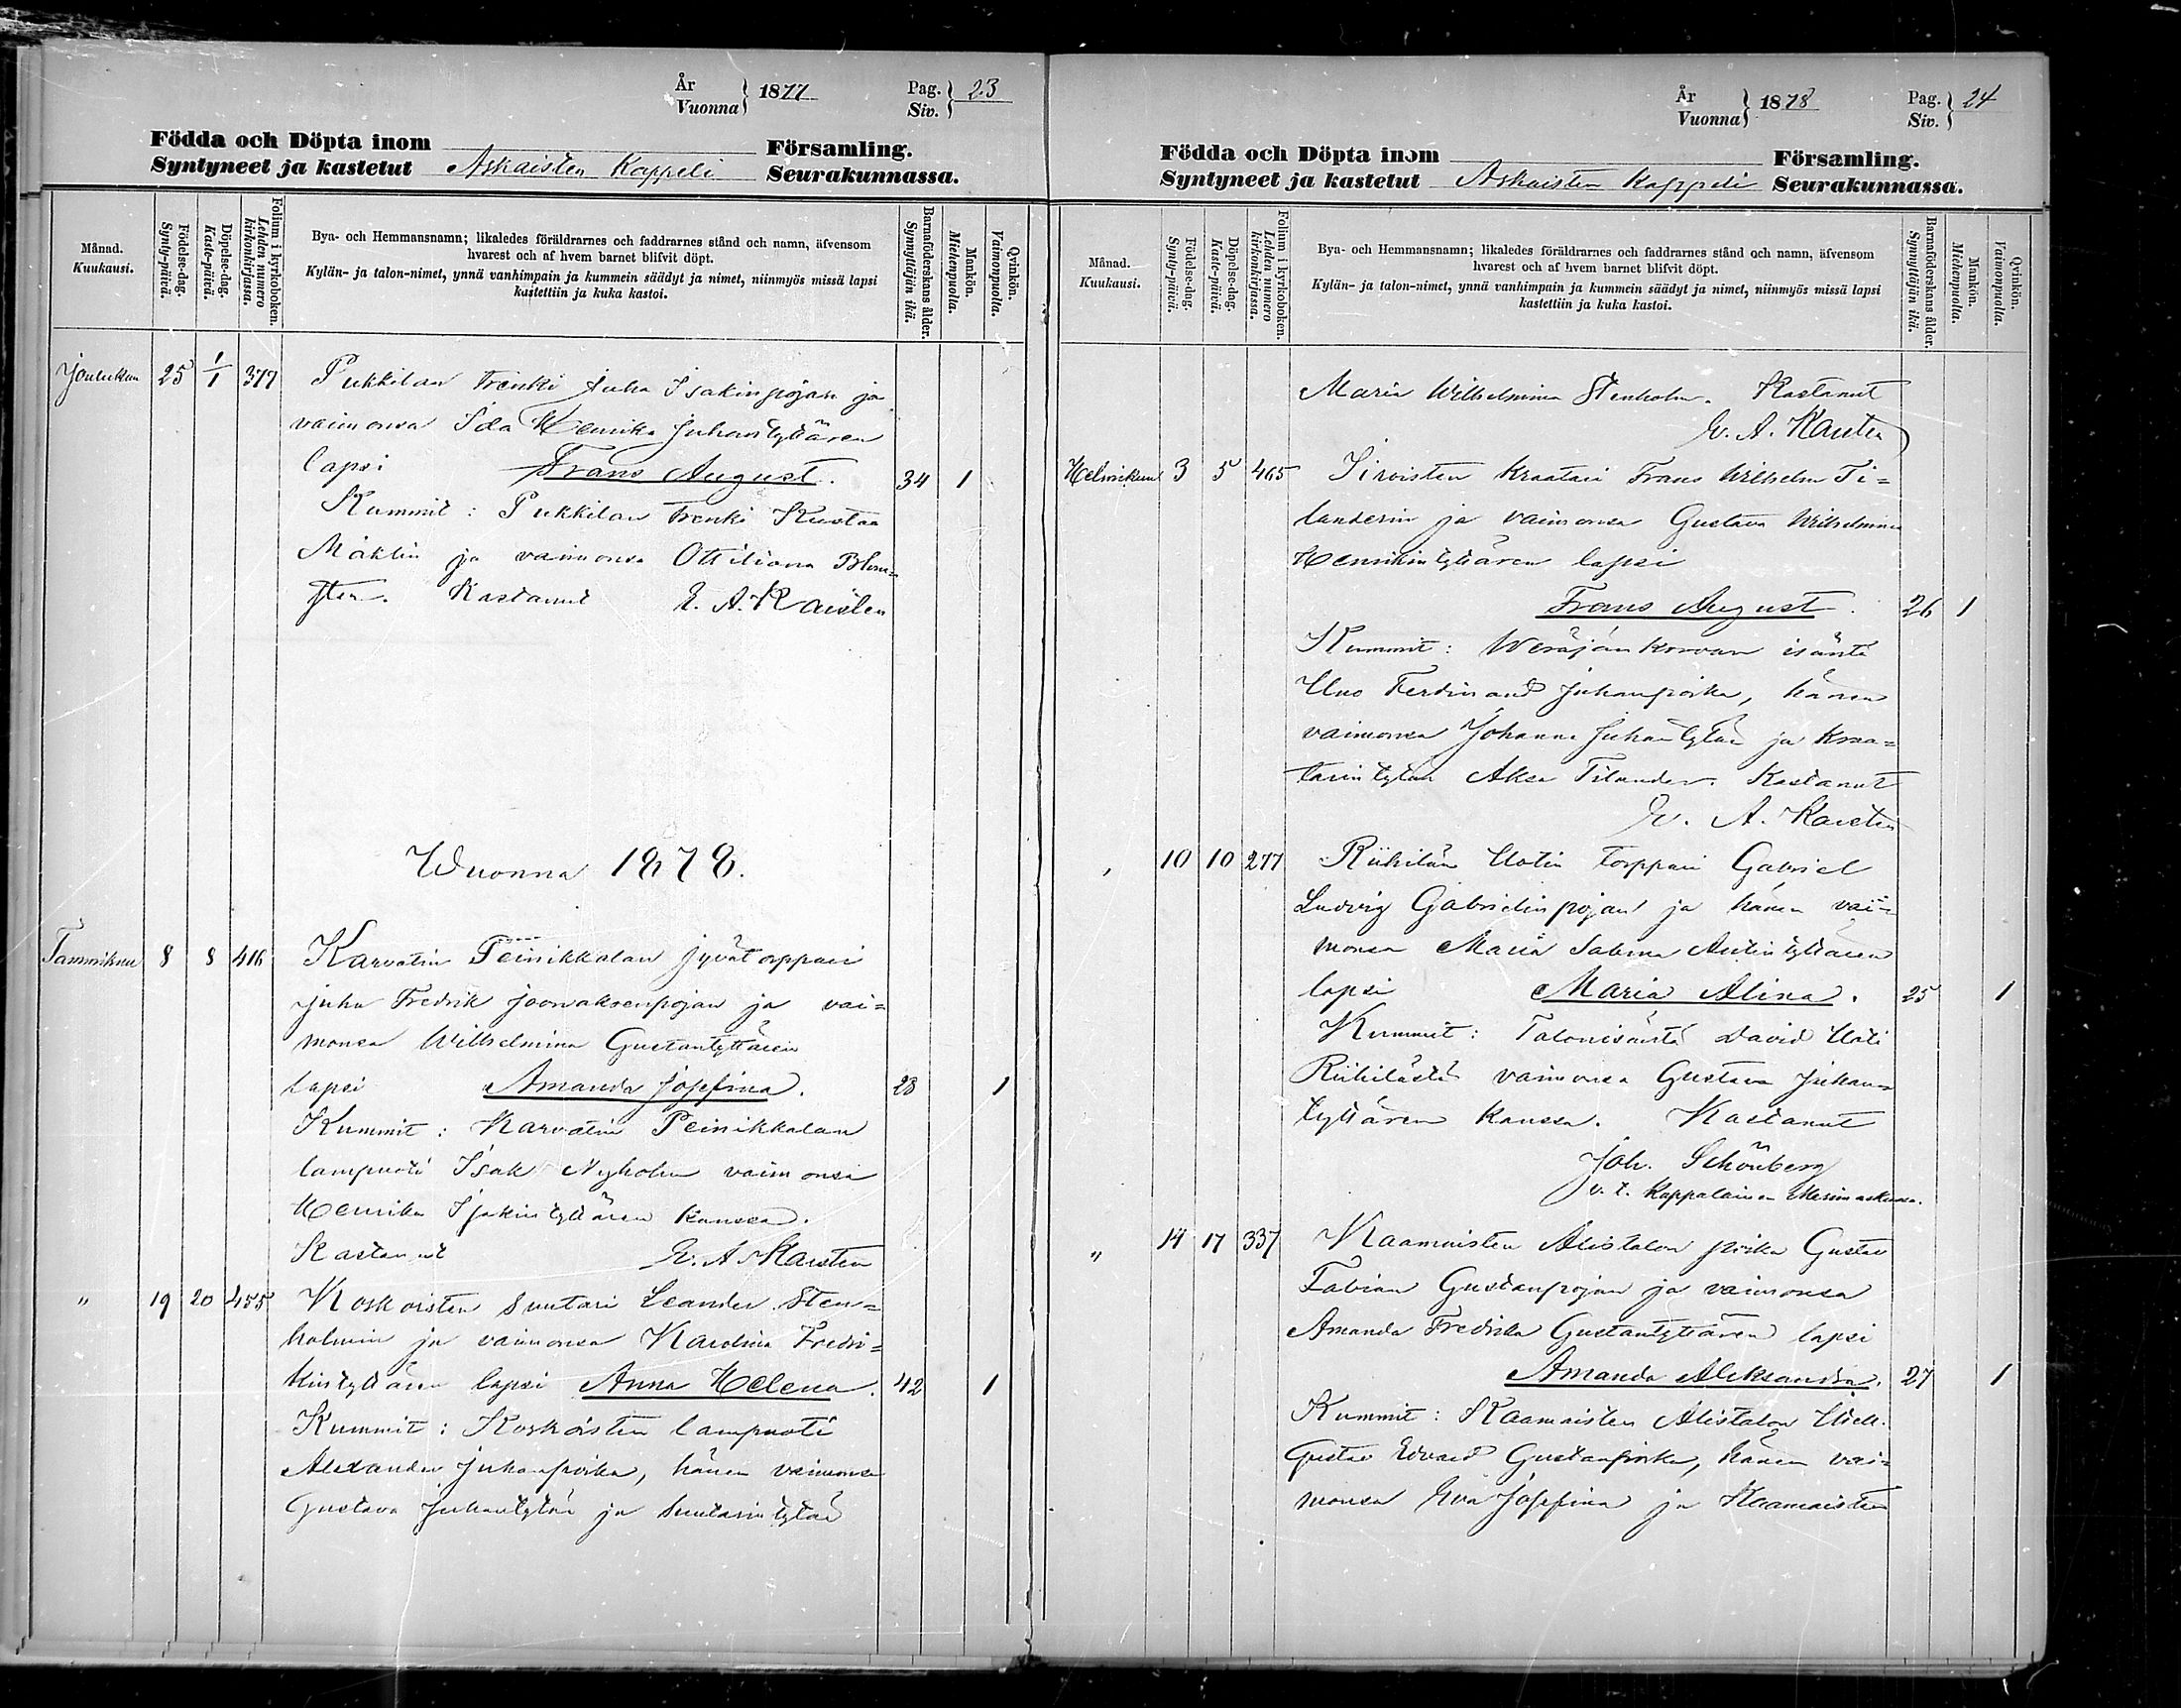 År
Vuonna } 1877 Pag.
Siv. } 23
Födda och Döpta inom Församling.
Syntyneet ja kastetut Askaisten Kappeli Seurakunnassa.
Månad.
Kuukausi.
Födelse-dag.
Synty-päivä.
Döpelse-dag.
Kaste-päivä.
Folium i kyrkoboken.
Lehden numero
kirkonkirjassa.
Bya- och Hemmansnamn; likaledes föräldrarnes och faddrarnes stånd och namn, äfvensom
hvarest och af hvem barnet blifvit döpt.
Kylän- ja talon-nimet, ynnä vanhimpain ja kummein säädyt ja nimet, niinmyös missä lapsi
kastettiin ja kuka kastoi.
Barnaföderskans ålder.
Synnyttäjän ikä.
Mankön.
Miehenpuolta.
Qvinkön.
Vaimonpuolta.
Joulukuu 25 1/1 377 Pukkilan trenki Juha Isakinpojan ja
vaimonsa Ida Henrika Juhantyttären
lapsi Frans August. 34 1
Kummit: Pukkilan trenki Kustaa
Mäklin ja vaimonsa Ottiliana Blom=
gren. Kastanut E. A. Karsten
Wuonna 1878.
Tammikuu 8 8 416 Karvatin Peinikkalan jyvätorppari
Juha Fredrik Joonaksenpojan ja vai=
monsa Wilhelmina Gustantyttären
lapsi Amanda Josefina. 28 1
Kummit: Karvatin Peinikkalan
lampuoti Isak Nyholm vaimonsa
Henrika Isakintyttären kanssa.
Kastanut E. A. Karsten
" 19 20 455 Koskoisten Suutari Leander Sten=
holmin ja vaimonsa Karolina Fredri=
kintyttären lapsi Anna Helena. 42 1
Kummit: Koskoisten lampuoti
Alexander Juhanpoika, hänen vaimonsa
Gustava Juhantytär ja Suutarintytär
År
Vuonna } 1878 Pag.
Siv. } 24
Födda och Döpta inom Församling.
Syntyneet ja kastetut Askaisten Kappeli Seurakunnassa.
Månad.
Kuukausi.
Födelse-dag.
Synty-päivä.
Döpelse-dag.
Kaste-päivä.
Folium i kyrkoboken.
Lehden numero
kirkonkirjassa.
Bya- och Hemmansnamn; likaledes föräldrarnes och faddrarnes stånd och namn, äfvensom
hvarest och af hvem barnet blifvit döpt.
Kylän- ja talon-nimet, ynnä vanhimpain ja kummein säädyt ja nimet, niinmyös missä lapsi
kastettiin ja kuka kastoi.
Barnaföderskans ålder.
Synnyttäjän ikä.
Mankön.
Miehenpuolta.
Qvinkön.
Vaimonpuolta.
Maria Wilhelmina Stenholm. Kastanut
E. A. Karsten
Helmikuu 3 5 465 Sirvisten Kraatari Frans Wilhelm Ti=
landerin ja vaimonsa Gustava Wilhelmina
Henrikintyttären lapsi
Frans August. 26 1
Kummit: Weräjänkorvan isäntä
Uno Ferdinand Juhanpoika, hänen
vaimonsa Johanna Juhantytär ja Kraa=
tarintytär Aksa Tilander. Kastanut
E. A. Karsten
, 10 10 277 Riihilän Uotin torppari Gabriel
Ludvig Gabrielinpojan ja hänen vai=
monsa Maria Sabina Antintyttären
lapsi Maria Alina. 25 1
Kummit: Talonisäntä David Uoti
Riihilästä vaimonsa Gustava Juhan=
tyttären kanssa. Kastanut
Joh. Schönberg
v. t. Kappalainen Merimaskussa.
" 14 17 337 Kaamaisten Alistalon poika Gustav
Fabian Gustanpojan ja vaimonsa
Amanda Fredrika Gustantyttären lapsi
Amanda Aleksandra. 27 1
Kummit: Kaamaisten Alistalon
Gustav Edvard Gustanpoika, hänen vai=
monsa Eva Josefina ja Kaamaisten